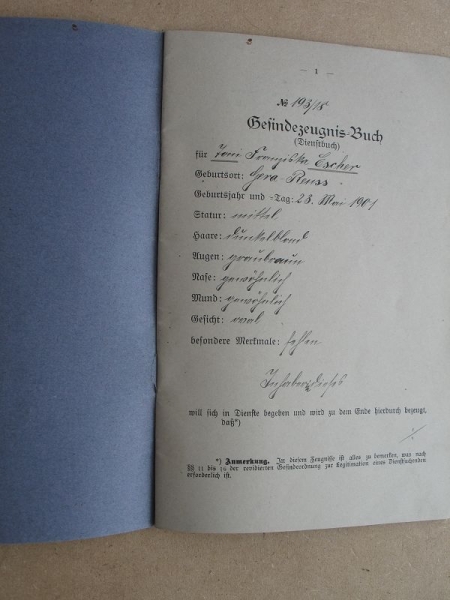 — 1 —
№ 193/18
Gesindezeugnis-Buch
(Dienstbuch)
für Toni Franziska Escher
Geburtsort: Gera-Reuss
Geburtsjahr und -Tag: 28. Mai 1901
Statur: mittel
Haare: dunkelblond
Augen: graubraun
Nase: gewöhnlich
Mund: gewöhnlich
Gesicht: oval
besondere Merkmale: fehlen
Inhaber dieses
will sich in Dienste begeben und wird zu dem Ende hierdurch bezeugt,
daß*)
*) Anmerkung. In diesem Zeugnisse ist alles zu bemerken, was nach
§§ 11 bis 16 der revidierten Gesindeordnung zur Legitimation eines Dienstsuchenden
erforderlich ist.